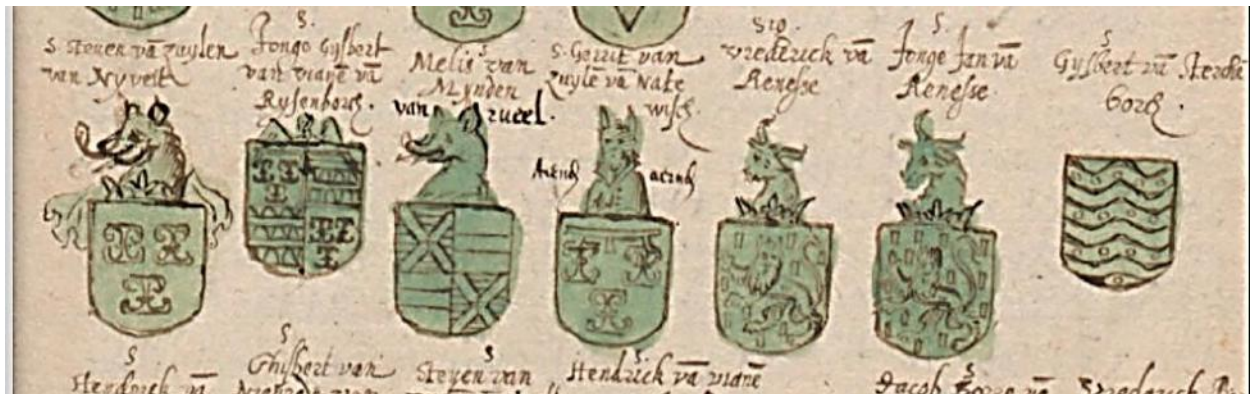 S. Steven vā Zuylen
van Nyvelt
S.
Jonge Gysbert
van vianē vā
Rysenborch.
S
Melis van
Mynden
van rueel.
S. Gerrit van
Zuyle vā Nate
wisch.
Arend aernd
S
vrederick vā
Renesse
S
Jonge Jan vā
Renesse.
S
Gysbert vā Stercke
borch.
S
Hendrick vā
S
Ghisbert van
S
Steven van
S.
Hendrick vā vianē
S
Jacob vā
Frederick